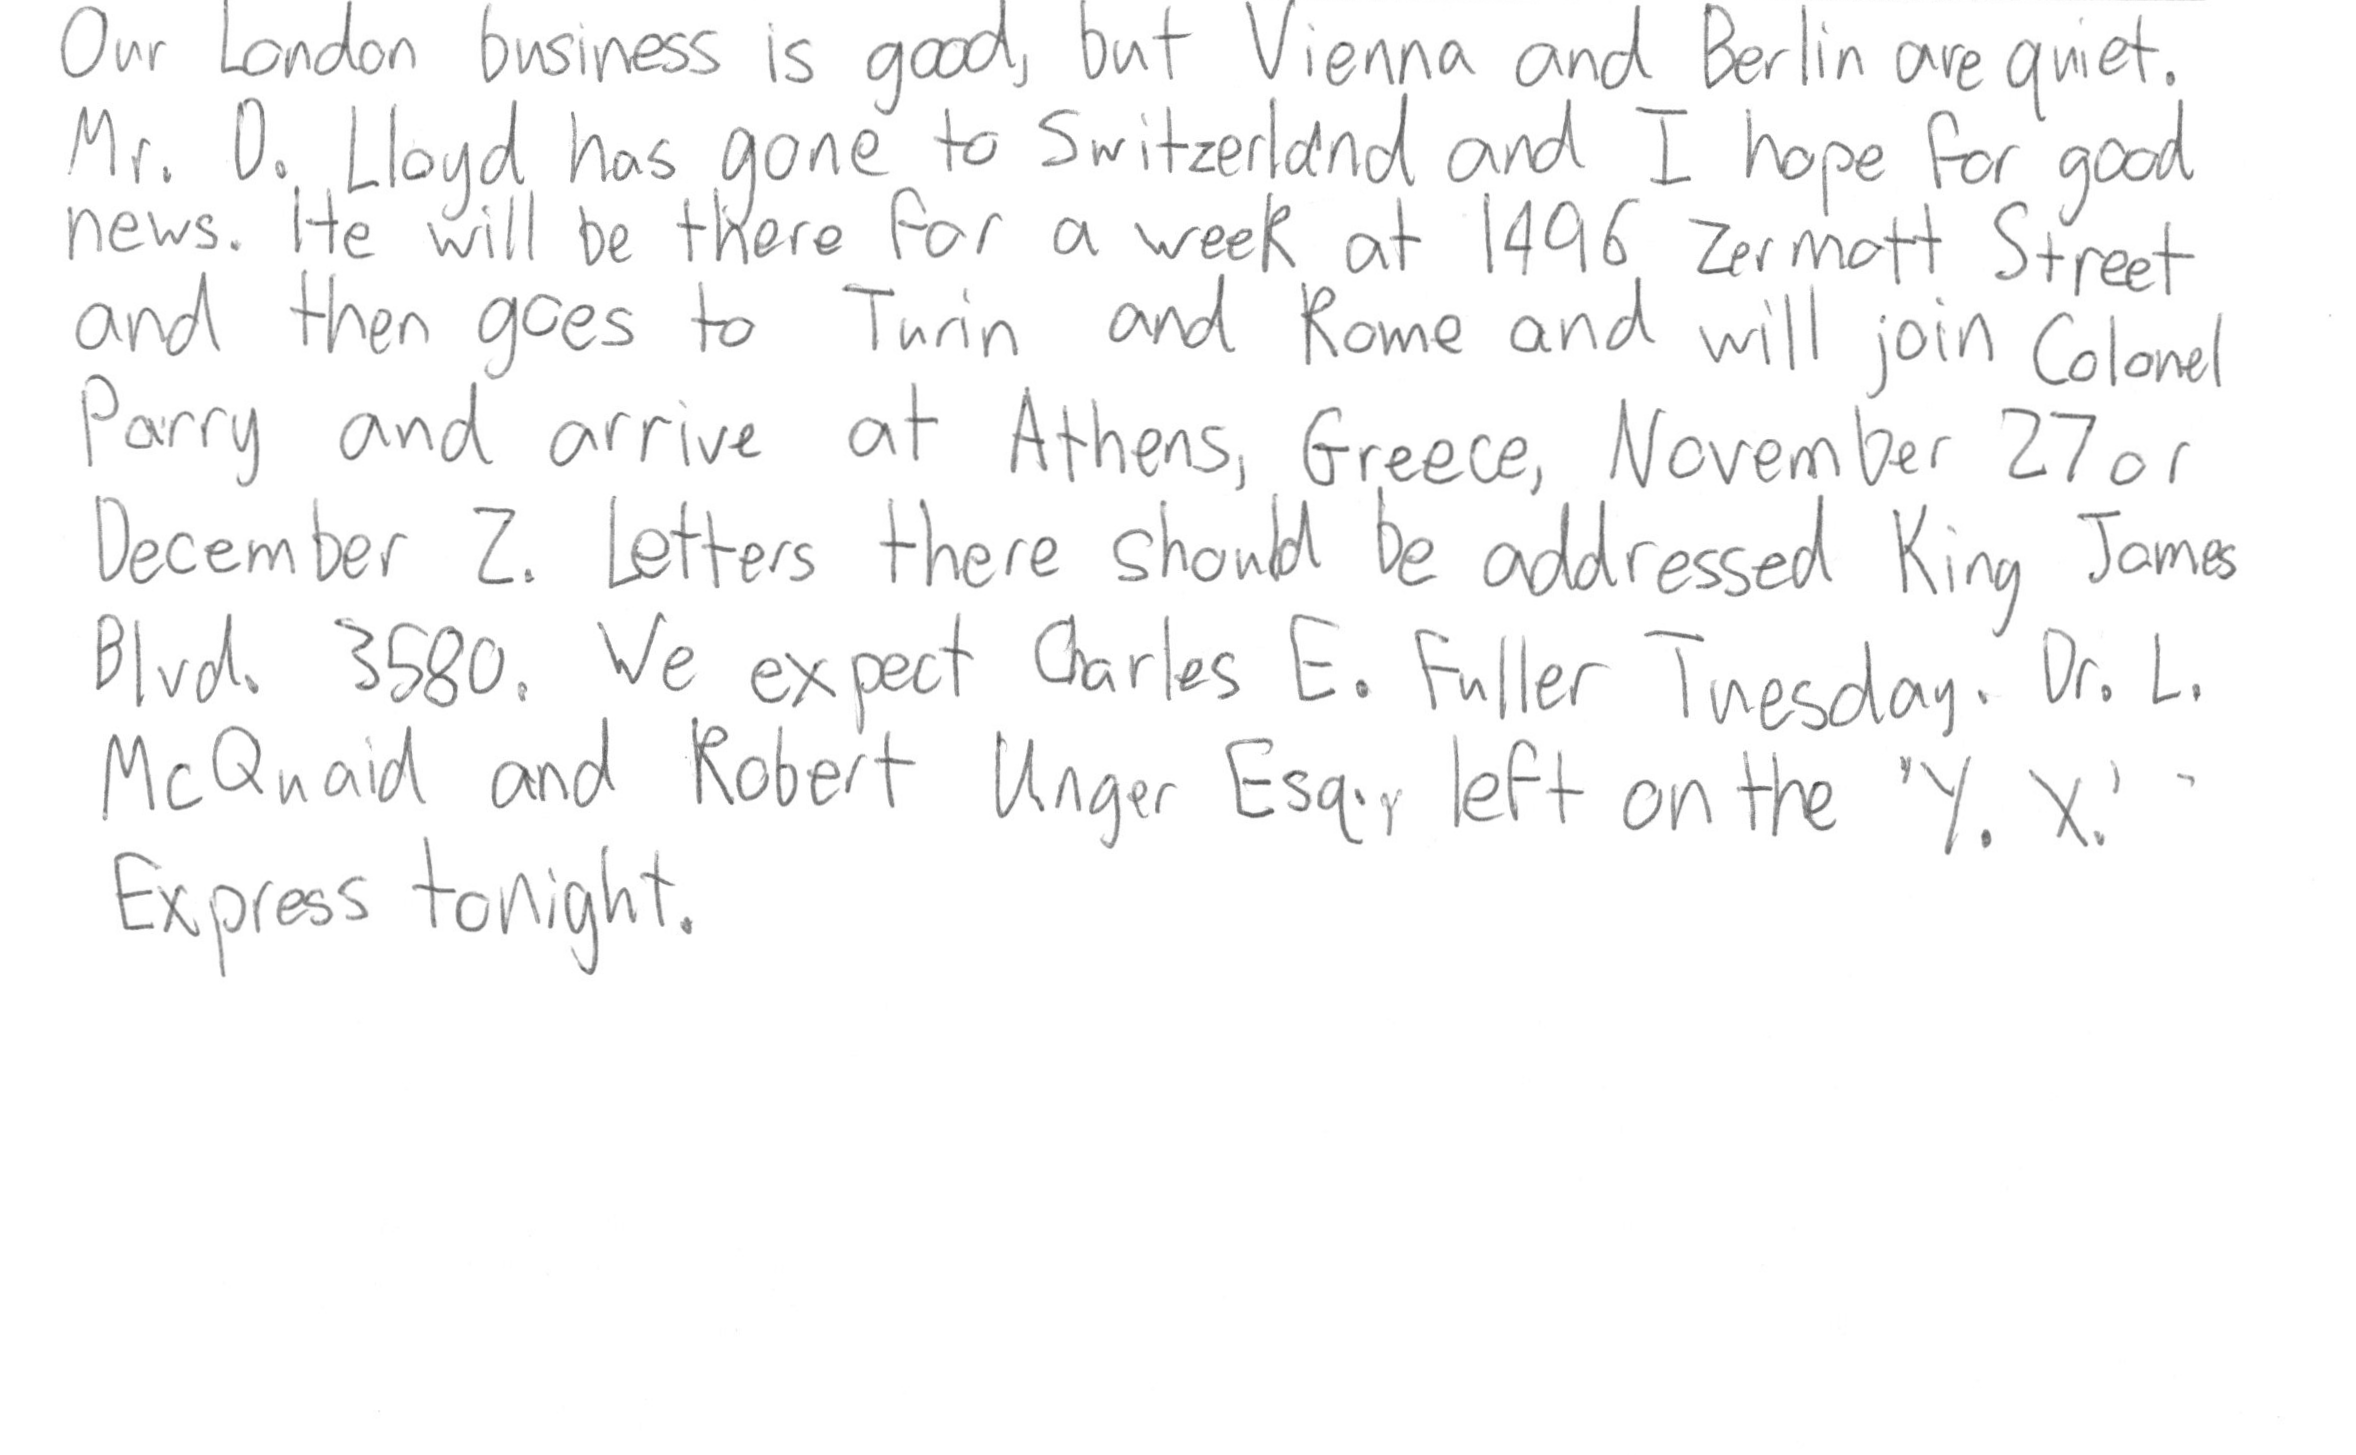 Our London business is good, but Vienna and Berlin are quiet.
Mr. D. Lloyd has gone to Switzerland and I hope for good
news. He will be there for a week at 1496 Zermott Street
and then goes to Turin and Rome and will join Colonel
Parry and arrive at Athens, Greece, November 27 or
December 2. Letters there should be addressed King James
Blvd. 3580. We expect Charles E. Fuller Tuesday. Dr. L.
McQuaid and Robert Unger Esq., left on the 'Y. X.'
Express tonight.